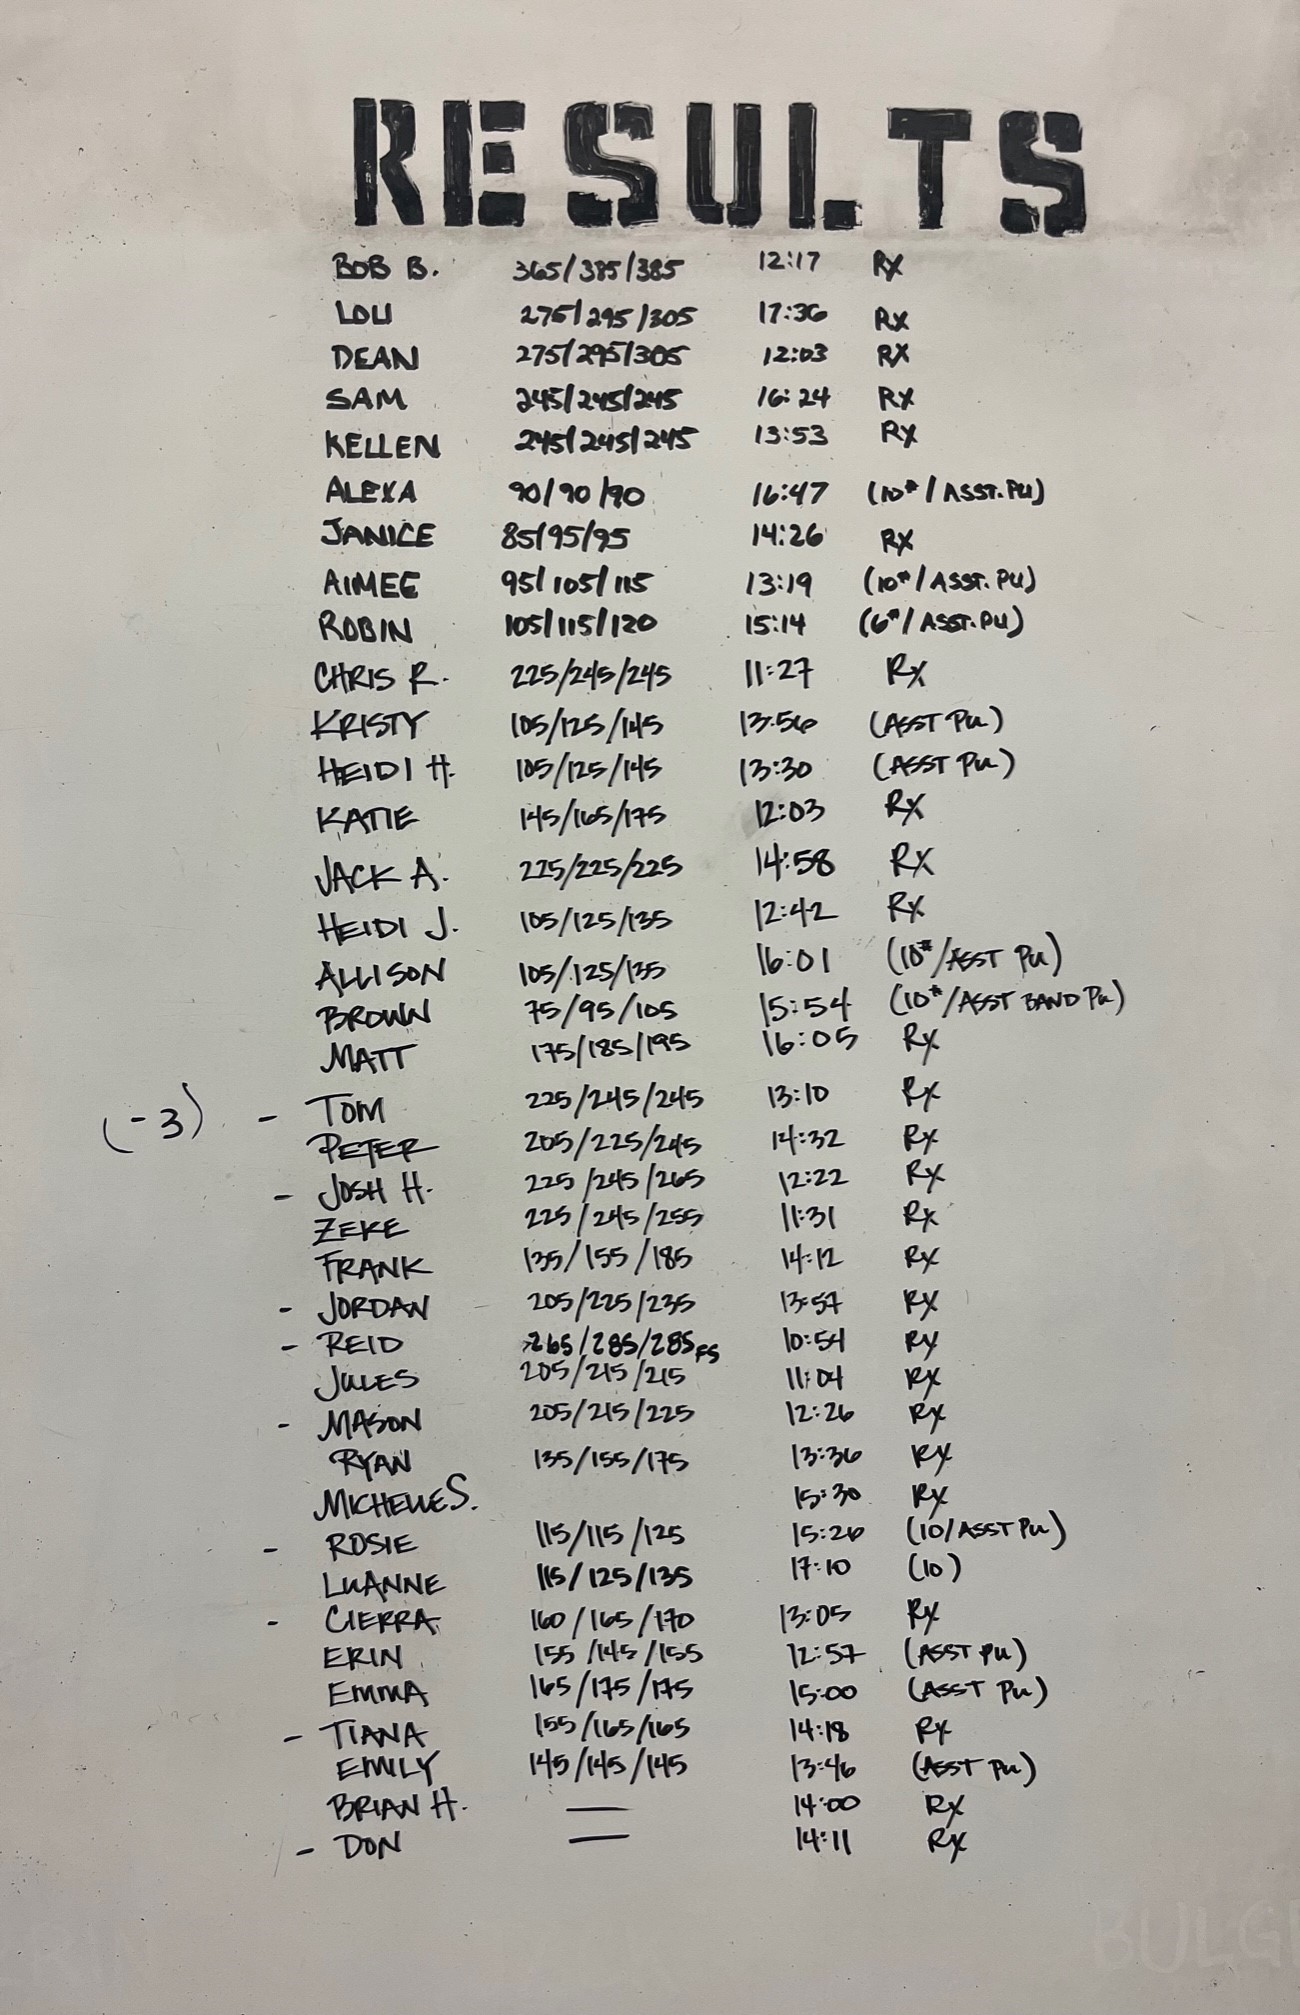 RESULTS
BOB B. 365/385/385 12:17 Rx
LOU 275/295/305 17:36 Rx
DEAN 275/295/305 12:03 Rx
SAM 245/245/245 16:24 Rx
KELLEN 245/245/245 13:53 Rx
ALEXA 90/90/90 16:47 (10#/ASST.PU)
JANICE 85/95/95 14:26 Rx
AIMEE 95/105/115 13:19 (10#/ASST.PU)
ROBIN 105/115/120 15:14 (6#/ASST.PU)
CHRIS R. 225/245/245 11:27 Rx
KRISTY 105/125/145 13:56 (ASST PU)
HEIDI H. 105/125/145 13:30 (ASST PU)
KATIE 145/165/175 12:03 Rx
JACK A. 225/225/225 14:58 Rx
HEIDI J. 105/125/135 12:42 Rx
ALLISON 105/125/135 16:01 (10#/ASST PU)
BROWN 75/95/105 15:54 (10#/ASST BAND PU)
MATT 175/185/195 16:05 Rx
(-3) - TOM 225/245/245 13:10 Rx
PETER 205/225/245 14:32 Rx
- JOSH H. 225/245/265 12:22 Rx
ZEKE 225/245/255 11:31 Rx
FRANK 135/155/185 14:12 Rx
- JORDAN 205/225/235 13:57 Rx
- REID 265/285/285 FS 10:54 Rx
JULES 205/215/215 11:04 Rx
- MASON 205/215/225 12:26 Rx
RYAN 135/155/175 13:36 Rx
MICHELLE S. 15:30 Rx
- ROSIE 115/115/125 15:26 (10/ASST PU)
LUANNE 115/125/135 17:10 (10)
- CIERRA 160/165/170 13:05 Rx
ERIN 155/145/155 12:57 (ASST PU)
EMMA 165/175/175 15:00 (ASST PU)
- TIANA 155/165/165 14:18 Rx
EMILY 145/145/145 13:46 (ASST PU)
BRIAN H. — 14:00 Rx
- DON — 14:11 Rx